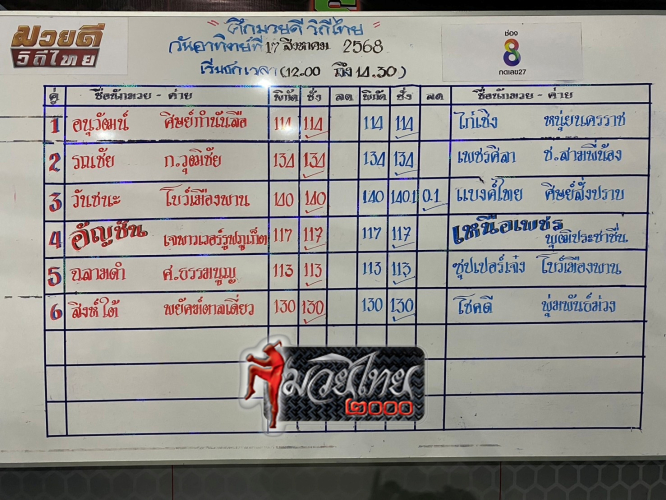 มวยดี
วิถีไทย
" ศึกมวยดี วิถีไทย "
วันอาทิตย์ที่ 17 สิงหาคม 2568
เริ่มชกเวลา (12.00 ถึง 14.30)
ช่อง
8
กดเลข27
คู่ ชื่อนักมวย - ค่าย พิกัด ชั่ง ลด พิกัด ชั่ง ลด ชื่อนักมวย - ค่าย
1 อนุวัฒน์ ศิษย์กำนันลือ 114 114 114 114 ไก่เชิง หนุ่ยนครราช
2 รณชัย ก.วุฒิชัย 134 134 134 134 เพชรศิลา ช.สามพี่น้อง
3 วันชนะ โบว์เมืองพาน 140 140 140 140.1 0.1 แบงค์ไทย ศิษย์สั่งปราบ
4 อัญชัน เจพาวเวอร์รูฟภูเก็ต 117 117 117 117 เหนือเพชร พุฒิประชาชื่น
5 ฉลามดำ ศ.ธรรมนูญ 113 113 113 113 ซุปเปอร์เจ๋ง โบว์เมืองพาน
6 สิงห์ใต้ พยัคฆ์ตาลเดี่ยว 130 130 130 130 โชคดี พุ่มพันธ์ม่วง
มวยไทย
๒๐๐๐